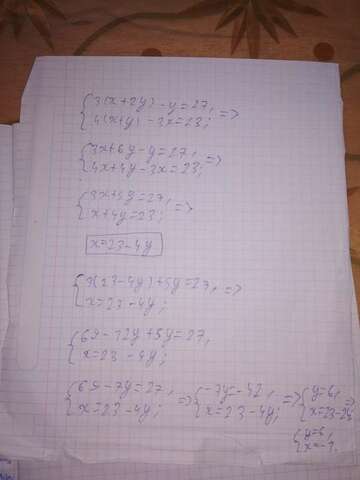 {3(x+2y)-y=27, =>
{4(x+y)-3x=23;
{3x+6y-y=27, =>
{4x+4y-3x=23;
{3x+5y=27, =>
{x+4y=23;
x=23-4y
{3(23-4y)+5y=27, =>
{x=23-4y;
{69-12y+5y=27,
{x=23-4y;
{69-7y=27, => {-7y=-42, => {y=6, =>
{x=23-4y; {x=23-4y; {x=23-24
{y=6,
{x=-1.